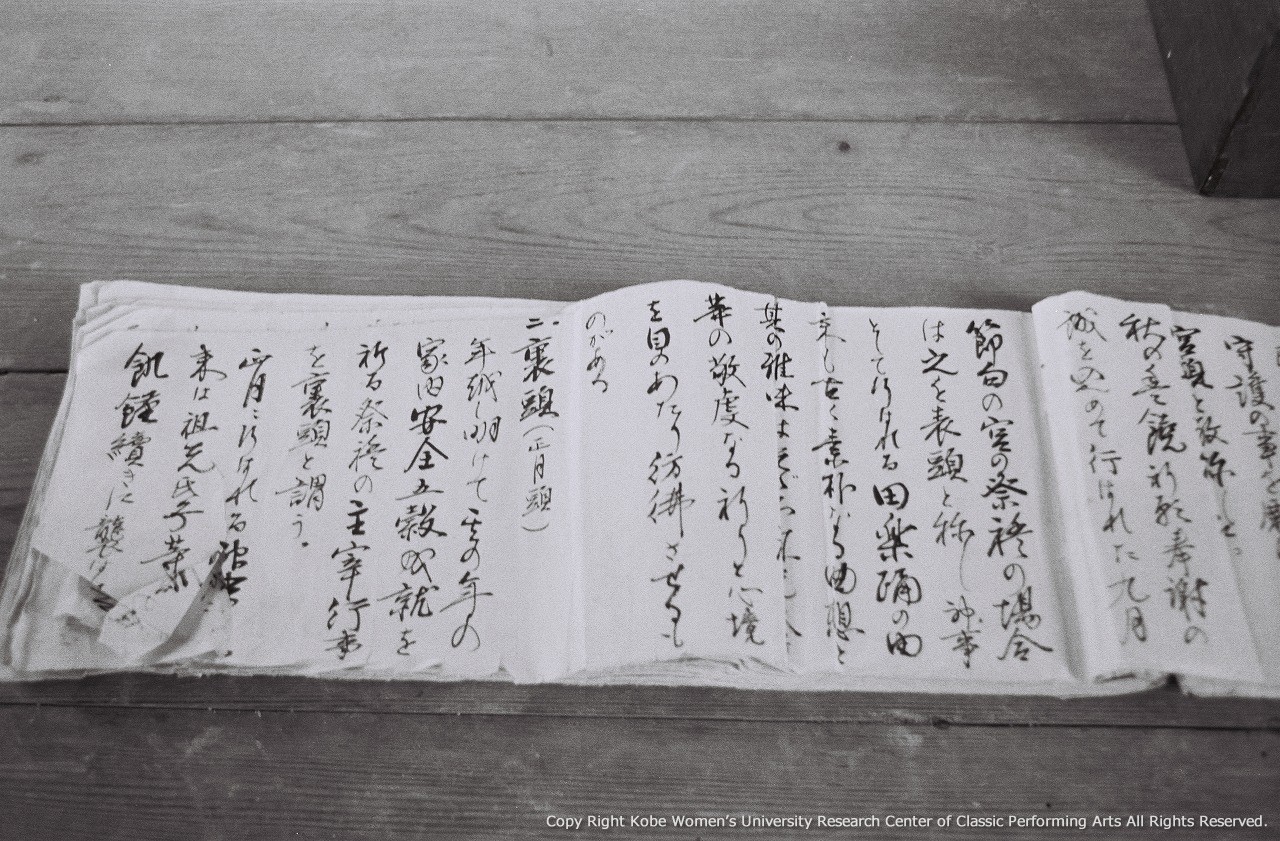 守護の
宮頭と改称しと。
秋の豊饒祈願奉謝の
誠を込めて行はれた九月
節句の宮の祭祀の場合
は之を表頭と称し神事
として行はれる田楽踊の由
来も古く素朴なる曲想と
其の雅味は
等の敬虔なる祈りと心境
を目のあたり彷彿させるも
のがある
二、裏頭(正月頭)
年越し明けて其の年の
家内安全五穀成就を
祈る祭祀の主宰行事
を裏頭と謂う。
正月に行はれる
来は祖先氏子等
飢饉續きに襲は
Copy Right Kobe Women's University Research Center of Classic Performing Arts All Rights Reserved.